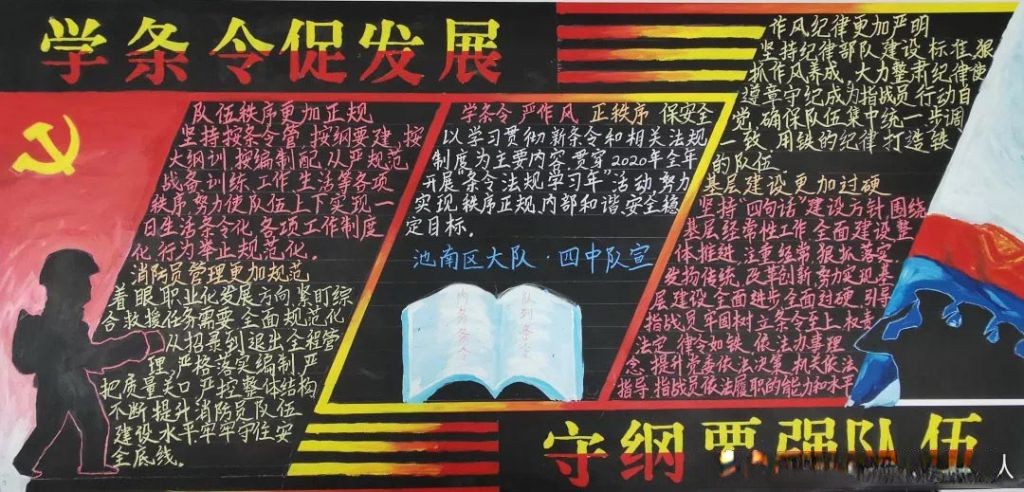 学条令促发展
队伍秩序更加正规
坚持按条令管、按纲要建、按
大纲训、按编制配、从严规范
战备、训练、工作、生活等各项
秩序,努力使队伍上下实现一
日生活条令化、各项工作制度
化、行为举止规范化。
消防员管理更加规范
着眼职业化发展方向,紧盯综
合救援任务需要,全面规范化
从招录到退出全程管
理,严格落实编制,严
把质量关口,严控整体结构,
不断提升消防员队伍
建设水平,牢牢守住安
全底线。
学条令 严作风 正秩序 保安全
以学习贯彻新条令和相关法规
制度为主要内容,贯穿2020年全年
开展“条令法规学习年”活动,努力
实现秩序正规,内部和谐,安全稳
定目标。
池南区大队·四中队宣
内务条令
队列条令
作风纪律更加严明
坚持纪律部队建设标准,狠
抓作风养成,大力整肃纪律,使
遵章守纪成为指战员行动自
觉,确保队伍集中统一、步调
一致,用铁的纪律打造铁
的队伍。
基层建设更加过硬
坚持“四句话”建设方针,围绕
基层经常性工作,全面建设整
体推进,注重经常,狠抓落实,
发扬传统,改革创新,努力实现基
层建设全面进步、全面过硬,引导
指战员牢固树立条令至上、权责
法定、律令如铁、依法办事理
念,提升党委依法决策、机关依法
指导、指战员依法履职的能力和水平
守纲要强队伍
人